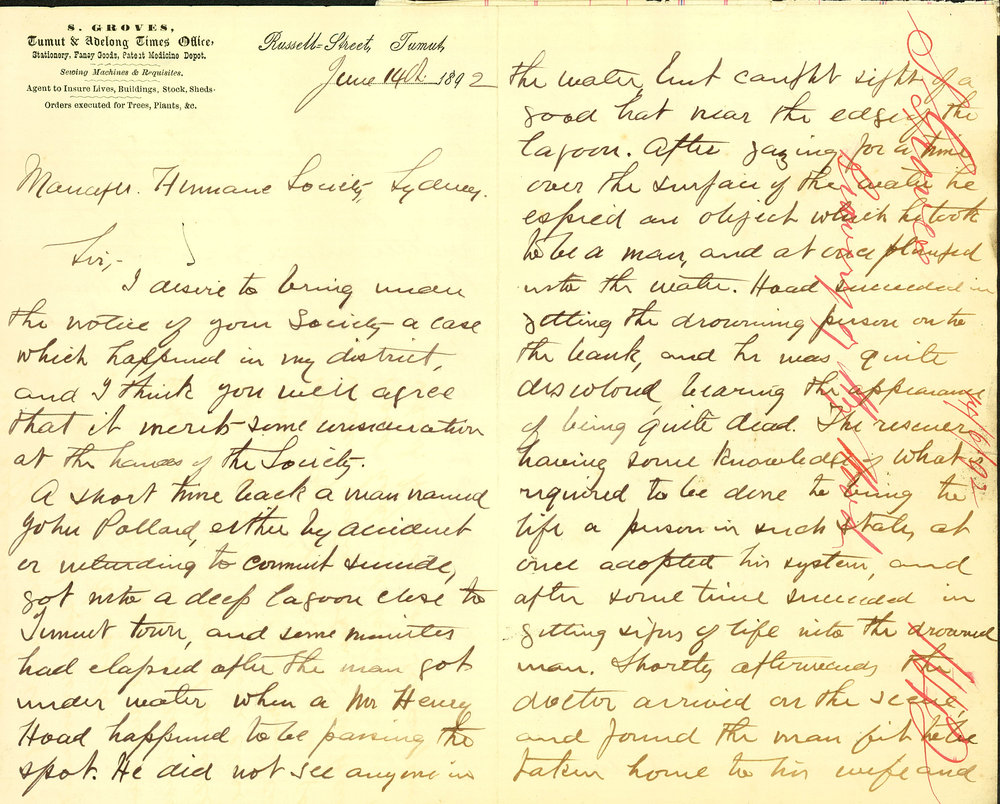 S. GROVES,
Tumut & Adelong Times Office,
Stationery, Fancy Goods, Patent Medicine Depot.
Sewing Machines & Requisites.
Agent to Insure Lives, Buildings, Stock, Sheds
Orders executed for Trees, Plants, &c.
Russell-Street, Tumut,
June 14th 1892
Manager. Humane Society, Sydney.
Sir,-
I desire to bring under
the notice of your Society a case
which happened in my district,
and I think you will agree
that it merits some consideration
at the hands of the Society.
A short time back a man named
John Pollard, either by accident
or intending to commit suicide,
got into a deep lagoon close to
Tumut town, and some minutes
had elapsed after the man got
under water when a Mr Henry
Hoad happened to be passing the
spot. He did not see anyone in
the water, but caught sight of a
good hat near the edge of the
lagoon. After gazing for a time
over the surface of the water he
espied an object which he took
to be a man, and at once plunged
into the water. Hoad succeeded in
getting the drowning person on to
the bank, and he was quite
discoloured, bearing the appearance
of being quite dead. The rescuer
having some knowledge of what is
required to be done to bring to
life a person in such state, at
once adopted his system, and
after some time succeeded in
getting signs of life into the drowned
man. Shortly afterwards the
doctor arrived on the scene,
and found the man fit to be
taken home to his wife and
S. Groves
Hy Hoad
14/6/92